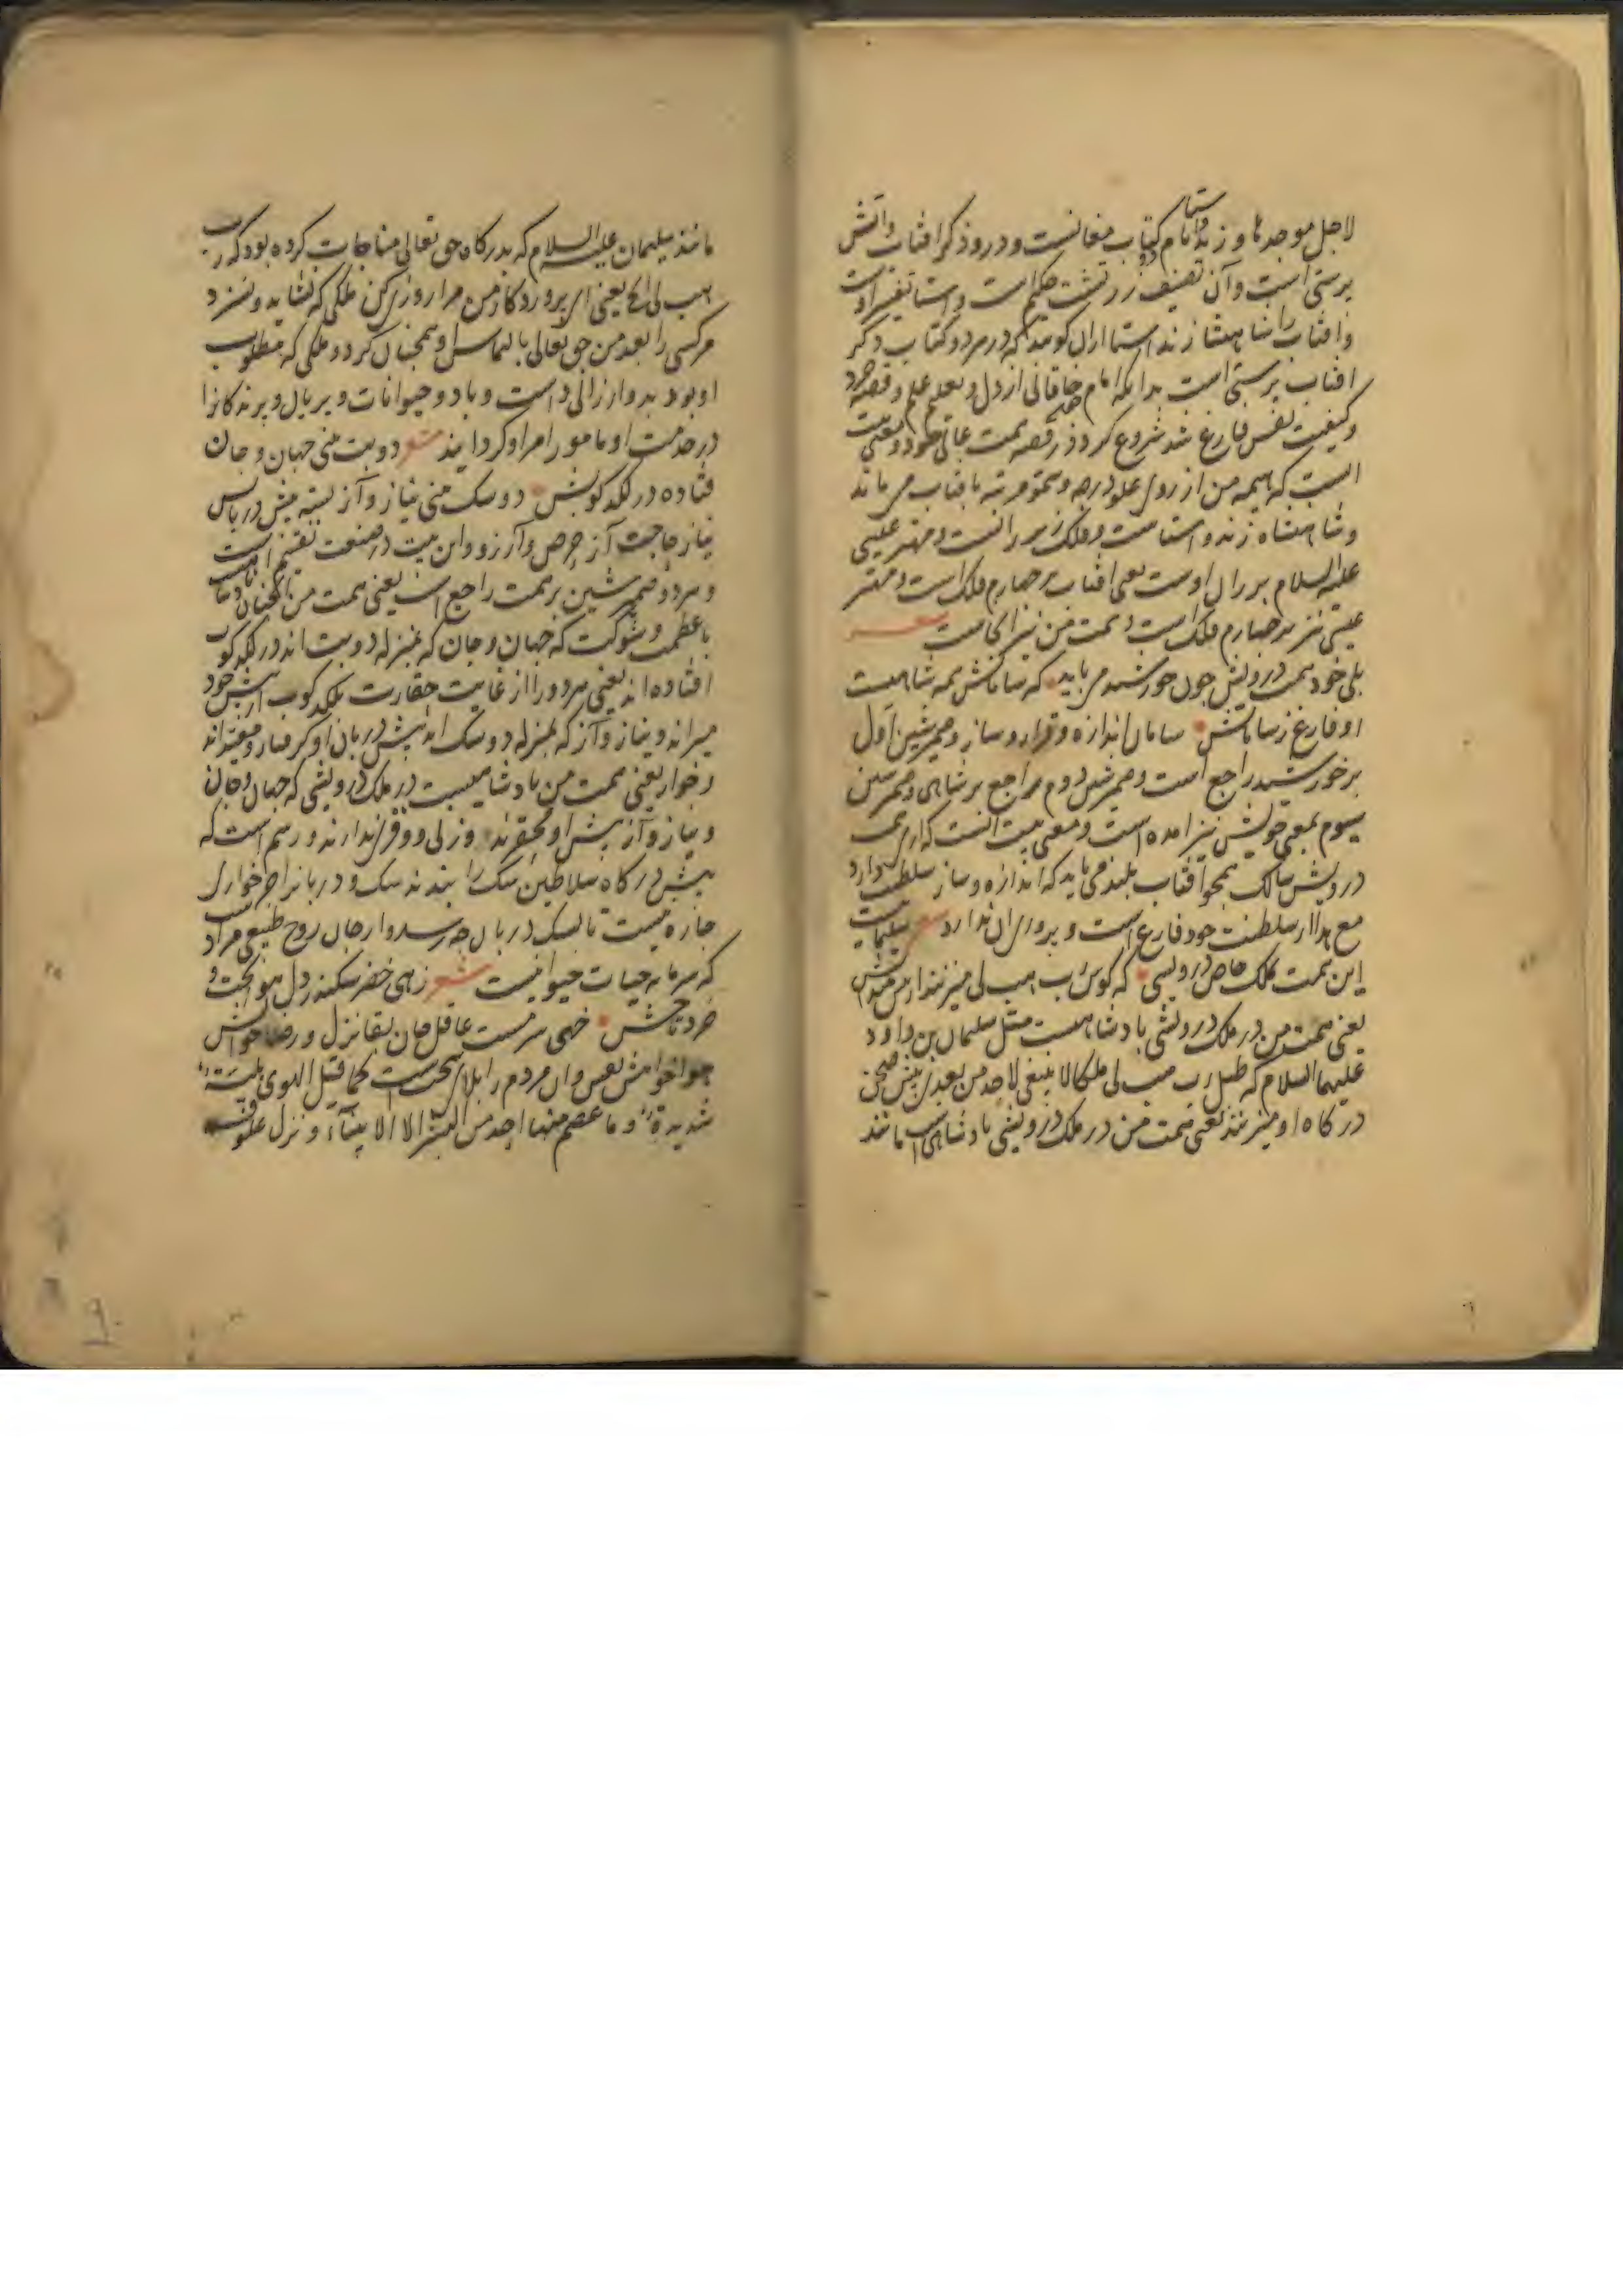 لاجل موجدها و زند و استا نام دو کتاب مغانست و درو ذکر افتاب و اتش
پرستی است و آن تصنیف زردتشت حکیم است و استا تفسیر اوست
و افتاب را شاهنشاه زند استا ازان کویند که در هر دو کتاب ذکر
افتاب پرستی است بدانکه امام خاقانی از دل و تعلیم علم و قصه خرد
و کیفیت نفس فارغ شد شروع کرد در قصه همت عالی خود و معنی بیت
انست که همه من از روی علو درجه و سمو مرتبه بافتاب می ماند
و شاهنشاه زند و استاست و فلک زیر رانست و مهتر عیسی
علیه السلام بر ران اوست یعنی افتاب بر چهارم فلک است و مهتر
عیسی نیز بر چهارم فلک است و همت من نیز انجاست شعر
بلی خود همت درویش چون خورشید می باید که سامانش همه شاهیست
او فارغ ز سامانش سامان اندازه و قرار و ساز و ضمیر شین اول
بر خورشید راجع است و ضمیر شین دوم راجع بر شاهی و ضمیر شین
سیوم بمعنی خویش نیز امده است و معنی بیت انست که اری همت
درویش سالک همچو افتاب بلند می باید که اندازه و ساز سلطنت دارد
مع هذا از سلطنت خود فارغ است و پروای ان ندارد شعر سلیمانیست
این همت بملک خاص درویشی که کوس رب هب لی میزنند از پیش میدانش
یعنی همت من در ملک درویشی بادشاهیست مثل سلیمان بن داود
علیهما السلام که طبل رب هب لی ملکا لا ینبغی لاحد من بعدی پیش صحن
درکاه او میزنند یعنی همت من در ملک درویشی بادشاهی است مانند
مانند سلیمان علیه السلام که بدرکاه حق تعالی مناجات کرده بود که رب
هب لی الخ یعنی ای پروردکار من مرا روزی کن ملکی که نشاید و نسزد
هر کسی را بعد من حق تعالی بالتماس او همچنان کرد و ملکی که مطلوب
او بود بدو ارزانی داشت و باد و حیوانات و پریان و پرندکانرا
در خدمت او مامور امر او کردانید شعر دو بت بینی جهان و جان
فتاده در لکد کوبش دو سک بینی نیاز و آز بسته پیش دربانش
نیاز حاجت آز حرص و آرزو و این بیت در صنعت تقسیم است
و هر دو ضمیر شین بر همت راجع است یعنی همت من انچنان
با عظمت و شوکت که جهان و جان که بمنزله دو بت اند در لکد کوب
افتاده اند یعنی هر دو را از غایت حقارت بلکد کوب از پیش خود
میراند و نیاز و آز که بمنزله دو سک اند پیش دربان او کرفتار و مقیداند
و خوار یعنی همت من بادشاهیست در ملک درویشی که جهان و جان
و نیاز و آز پیش او محقرند و زلی و وقری ندارند و رسم است که
پیش درکاه سلاطین سک را بندند سک و دربانرا جز خواری
چاره نیست تا بسک دربان چه رسد و از جان روح طبیعی مراد است
که سرمایه حیات حیوانیست شعر زهی خضر سکندر دل هوا تخت و
خرد تاجش خهی سرمست عاقل جان بقا نزل و رضا خوانش
هوا خواهش نفس و ان مردم را بلای سخت است کما قیل الهوی بلیّة
شدیدة و ما عصم منها احد من البشر الا الانبیآء و نزل علوفه